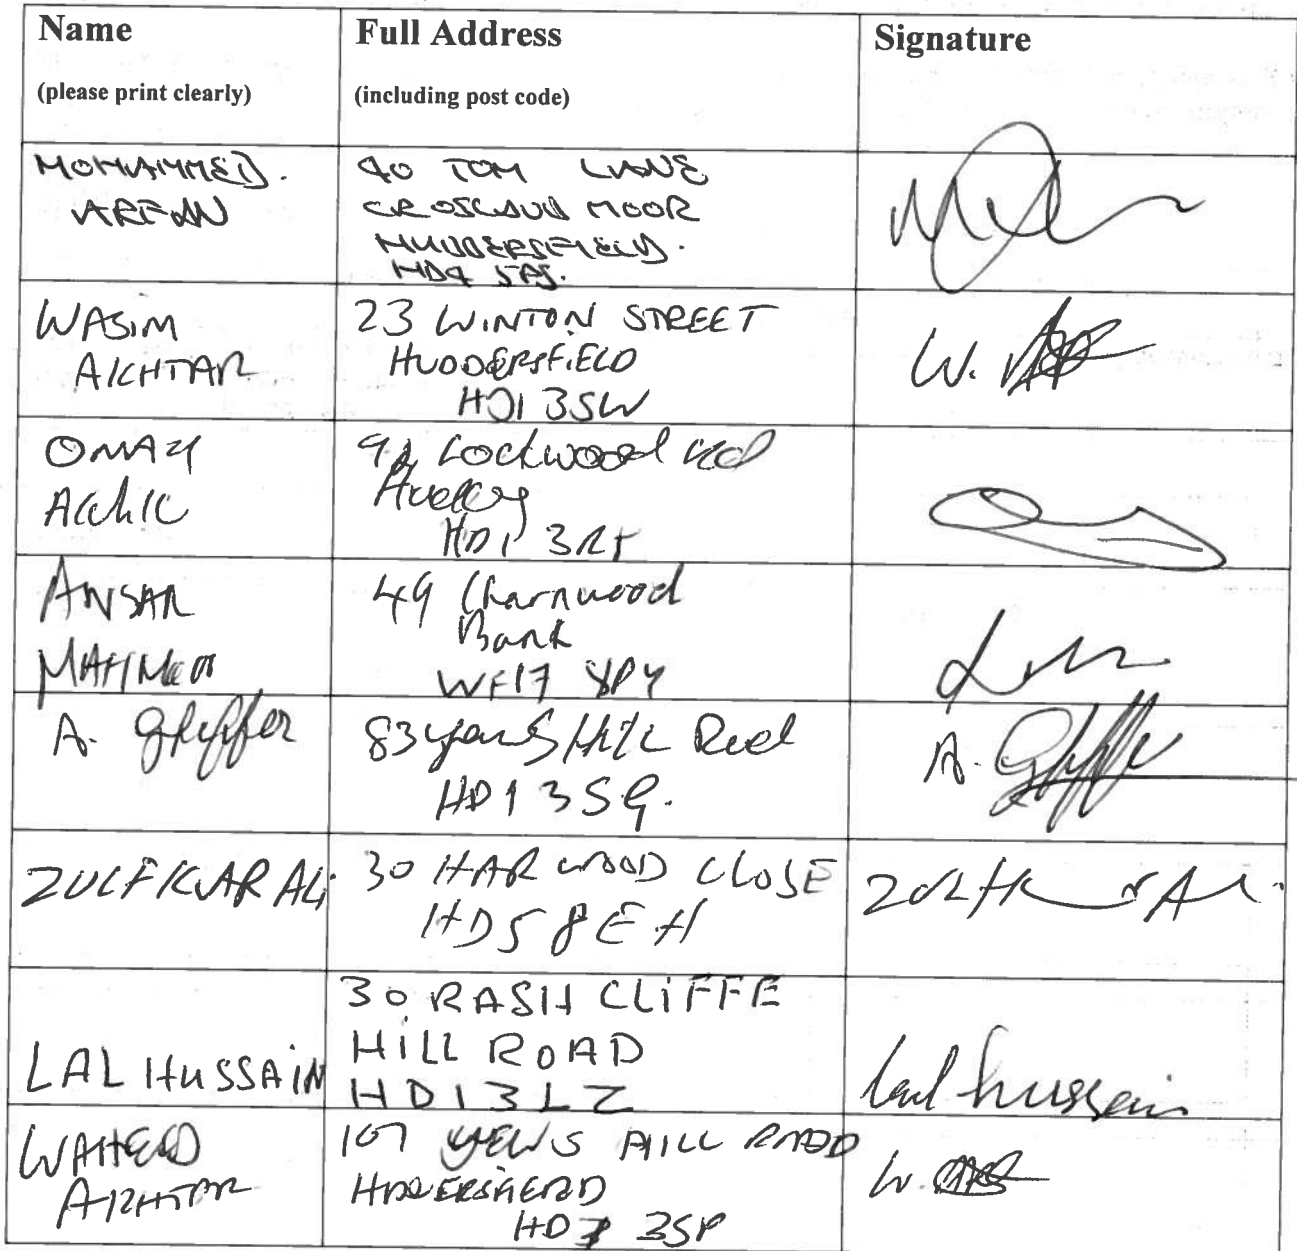 Name
(please print clearly)
Full Address
(including post code)
Signature
MOHAMMED.
ARFAN
40 TOM LANE
CROSLAND MOOR
HUDDERSFIELD.
HD4
WASIM
AKHTAR
23 WINTON STREET
HUDDERSFIELD
HD1 3SW
W.
OMAR
Lockwood Rd
HD1 3RT
ANSAR
MAHMOOD
49 Charnwood
Bank
WF17
A.
83 Hill Road
HD1 3SG.
A.
ZULFKUAR ALI
30 HARWOOD CLOSE
HD5 8EH
LAL HUSSAIN
30 RASH CLIFFE
HILL ROAD
HD1 3LZ
Lal hussain
WAHEED
AKHTAR
107 YEWS HILL ROAD
HUDDERSFIELD
3SP
W.